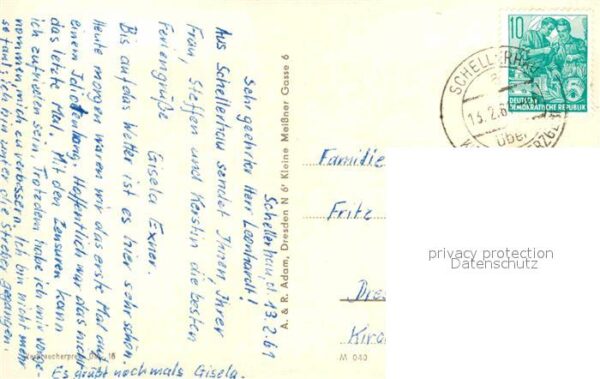 Schellerhau, d. 13.2.61
Sehr geehrter Herr Leonhardt!
Aus Schellerhau sendet Ihnen, Ihrer
Frau, Steffen und Kerstin die besten
Feriengrüße
Gisela Exner.
Bis auf das Wetter ist es hier sehr schön.
Heute morgen waren wir das erste Mal auf
einem Idiotenhang. Hoffentlich war das nicht
das letzte Mal. Mit den Zensuren kann
ich zufrieden sein. Trotzdem habe ich mir vorge-
nommen mich zu verbessern. Ich bin nicht mehr
so faul; ich bin unter die Streber gegangen.
Es grüßt nochmals Gisela.
A. & R. Adam, Dresden N 6 Kleine Meißner Gasse 6
Verbraucherpreis
M 040
10
DEUTSCHE
DEMOKRATISCHE REPUBLIK
SCHELLERHAU
13.2.6
über
Familie
Fritz
Dre
Kirc
privacy protection
Datenschutz